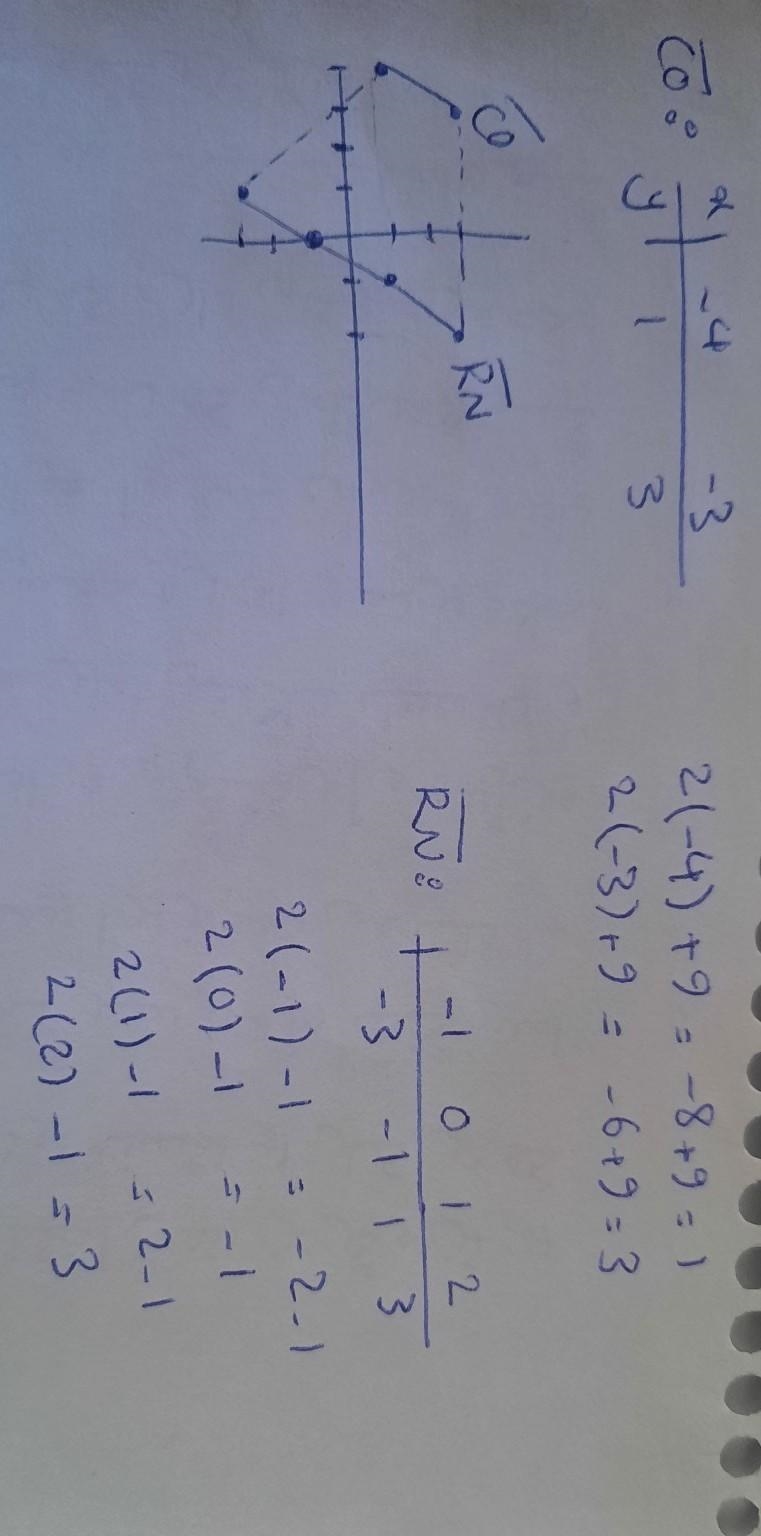 x -4 -3
C̅O̅:
y 1 3
2(-4)+9 = -8+9 = 1
2(-3)+9 = -6+9 = 3
C̅O̅
R̅N̅
-1 0 1 2
R̅N̅:
-3 -1 1 3
2(-1)-1 = -2-1
2(0)-1 = -1
2(1)-1 = 2-1
2(2)-1 = 3